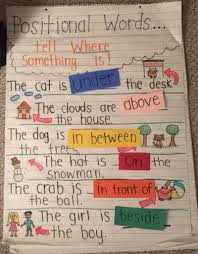 Positional Words...
tell Where
Something is!
The cat is under the desk
The clouds are above
the house.
The dog is in between
the trees.
The hat is on the
snowman.
The crab is in front of
the ball.
The girl is beside
the boy.